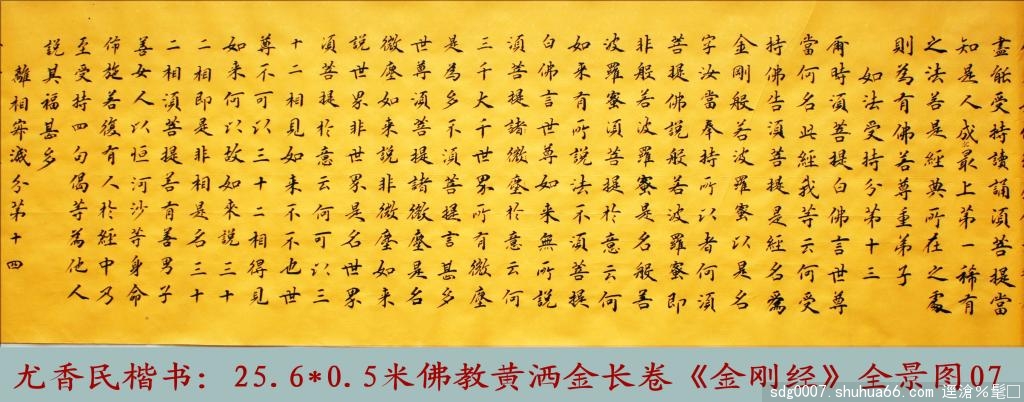 盡能受持讀誦須菩提當
知是人成最上第一稀有
之法若是經典所在之處
則為有佛若尊重弟子
如法受持分第十三
爾時須菩提白佛言世尊
當何名此經我等云何受
持佛告須菩提是經名為
金剛般若波羅蜜以是名
字汝當奉持所以者何須
菩提佛說般若波羅蜜即
非般若波羅蜜是名般若
波羅蜜須菩提於意云何
如來有所說法不須菩提
白佛言世尊如來無所說
須菩提諸微塵於意云何
三千大千世界所有微塵
是為多不須菩提言甚多
世尊須菩提諸微塵是名
微塵如來說非微塵如來
說世界非世界是名世界
須菩提於意云何可以三
十二相見如來不不也世
尊不可以三十二相得見
如來何以故如來說三十
二相即是非相是名三十
二相須菩提若有善男子
善女人以恒河沙等身命
佈施若復有人於經中乃
至受持四句偈等為他人
說其福甚多
離相寂滅分第十四
尤香民楷书：25.6*0.5米佛教黄洒金长卷《金刚经》全景图07
sdg0007.shuhua66.com